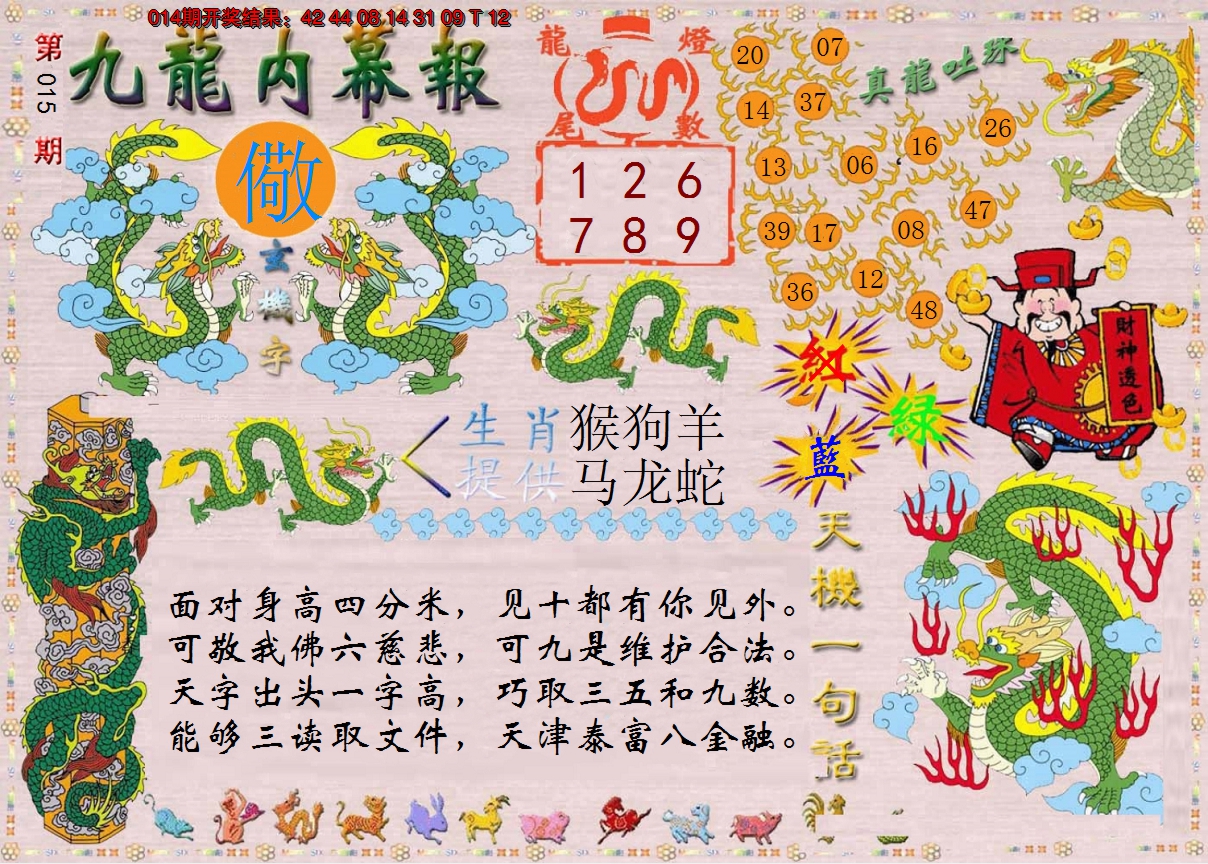 014期开奖结果：42 44 08 14 31 09 T 12
第
015
期
九龍内幕報
儆
玄
機
字
龍 燈
尾 數
1 2 6
7 8 9
真龍吐珠
20 07
14 37
13 06 16 26
39 17 08 47
36 12 48
財神透色
紅
綠
藍
生肖 猴狗羊
提供 马龙蛇
天
機
一
句
話
面对身高四分米，见十都有你见外。
可敬我佛六慈悲，可九是维护合法。
天字出头一字高，巧取三五和九数。
能够三读取文件，天津泰富八金融。